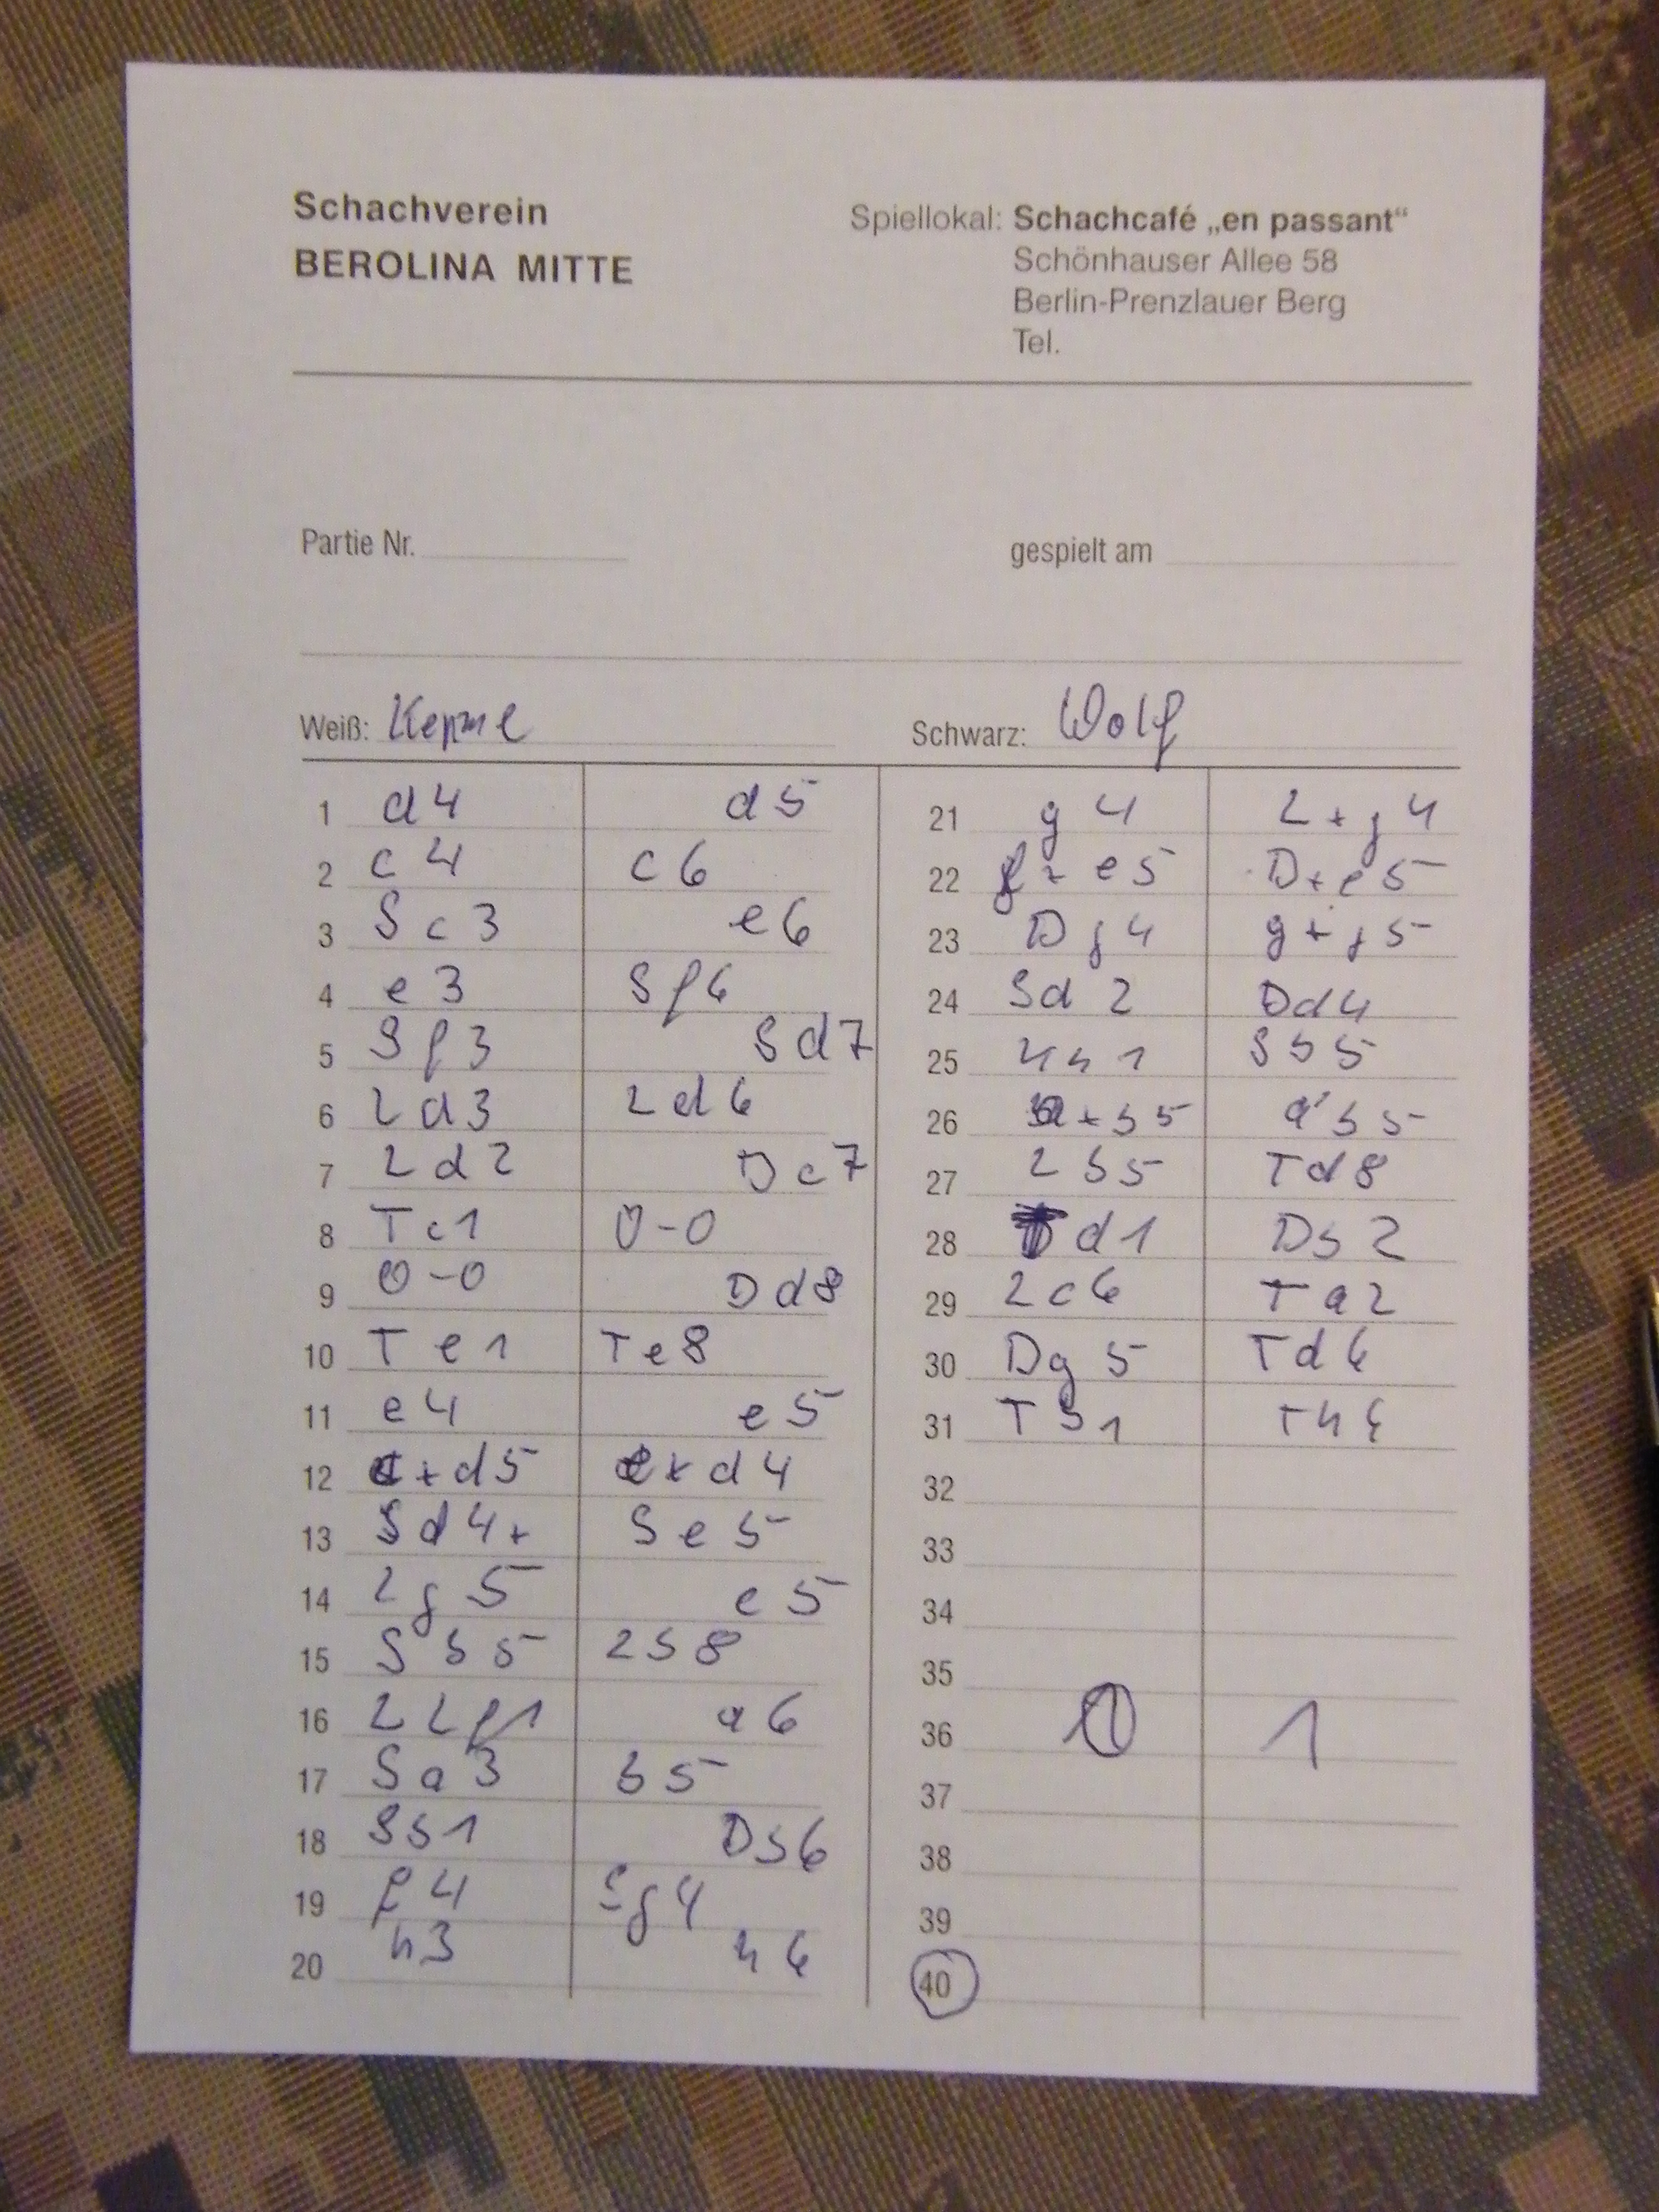 Schachverein
BEROLINA MITTE
Spiellokal: Schachcafé „en passant“
Schönhauser Allee 58
Berlin-Prenzlauer Berg
Tel.
Partie Nr.
gespielt am
Weiß:
Schwarz: Wolf
1 d4 d5
2 c4 c6
3 Sc3 e6
4 e3 Sf6
5 Sf3 Sd7
6 Ld3 Ld6
7 Ld2 Dc7
8 Tc1 0-0
9 0-0 Dd8
10 Te1 Te8
11 e4 e5
12 c+d5 e+d4
13 Sd4+ Se5
14 Lg5 c5
15 Sb5 Lb8
16 L Lf1 a6
17 Sa3 b5
18 Sb1 Db6
19 f4 Sg4
20 h3 h6
21 g4 L+g4
22 f+e5 D+e5
23 Dg4 g+g5
24 Sd2 Dd4
25 Kh1 Sb5
26 a+b5 a'b5
27 Lb5 Td8
28 d1 Db2
29 Lc6 Ta2
30 Dg5 Td6
31 Tb1 Th6
32
33
34
35
36 0 1
37
38
39
40